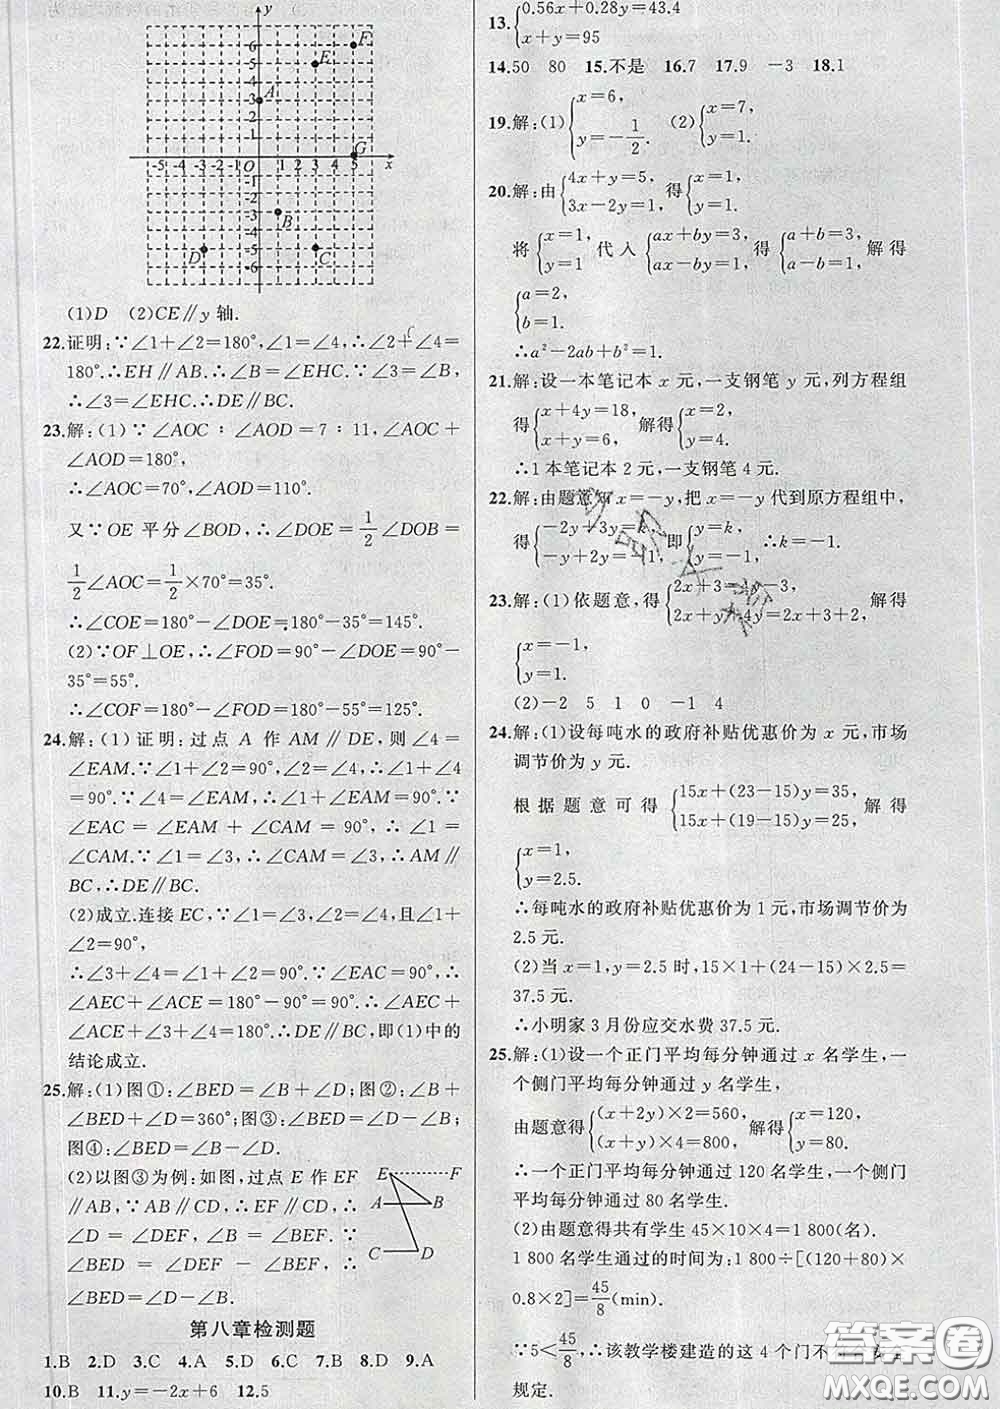 y
x
O
6
5
4
3
2
1
-1
-2
-3
-4
-5
-6
-5 -4 -3 -2 -1 1 2 3 4 5
A
B
C
D
E
F
G
(1)D (2)CE∥y 轴.
22.证明:∵∠1+∠2=180°,∠1=∠4,∴∠2+∠4=
180°.∴EH∥AB.∴∠B=∠EHC.∵∠3=∠B,
∴∠3=∠EHC.∴DE∥BC.
23.解:(1)∵∠AOC∶∠AOD=7∶11,∠AOC+
∠AOD=180°,
∴∠AOC=70°,∠AOD=110°.
又∵OE 平分∠BOD,∴∠DOE=1/2∠DOB=
1/2∠AOC=1/2×70°=35°.
∴∠COE=180°-∠DOE=180°-35°=145°.
(2)∵OF⊥OE,∴∠FOD=90°-∠DOE=90°-
35°=55°.
∴∠COF=180°-∠FOD=180°-55°=125°.
24.解:(1)证明:过点 A 作 AM∥DE,则∠4=
∠EAM.∵∠1+∠2=90°,∠2=∠4,∴∠1+∠4
=90°.∴∠2=∠EAM,∴∠1+∠EAM=90°.∵
∠EAC=∠EAM+∠CAM=90°,∴∠1=
∠CAM.∵∠1=∠3,∴∠CAM=∠3,∴AM∥
BC,∴DE∥BC.
(2)成立.连接 EC,∵∠1=∠3,∠2=∠4,且∠1+
∠2=90°,
∴∠3+∠4=∠1+∠2=90°.∵∠EAC=90°,∴
∠AEC+∠ACE=180°-90°=90°.∴∠AEC+
∠ACE+∠3+∠4=180°.∴DE∥BC,即(1)中的
结论成立.
25.解:(1)图①:∠BED=∠B+∠D;图②:∠B+
∠BED+∠D=360°;图③:∠BED=∠D-∠B;
图④:∠BED=∠B-∠D.
(2)以图③为例:如图,过点 E 作 EF
∥AB,∵AB∥CD,∴EF∥CD,∴
∠D=∠DEF,∠B=∠BEF.∵
∠BED=∠DEF-∠BEF,∴
∠BED=∠D-∠B.
E F
A B
C D
第八章检测题
1.B 2.D 3.C 4.A 5.D 6.C 7.B 8.D 9.A
10.B 11.y=-2x+6 12.5
13.{0.56x+0.28y=43.4
x+y=95
14.50 80 15.不是 16.7 17.9 -3 18.1
19.解:(1){x=6, y=-1/2. (2){x=7, y=1.
20.解:由{4x+y=5, 3x-2y=1, 得{x=1, y=1.
将{x=1, y=1 代入{ax+by=3, ax-by=1, 得{a+b=3, a-b=1, 解得
{a=2, b=1.
∴a²-2ab+b²=1.
21.解:设一本笔记本 x 元,一支钢笔 y 元,列方程组
得{x+4y=18, x+y=6, 解得{x=2, y=4.
∴1本笔记本 2 元,一支钢笔 4 元.
22.解:由题意知 x=-y,把 x=-y 代到原方程组中,
得{-2y+3y=k, -y+2y=-1, 即{y=k, y=-1, ∴k=-1.
23.解:(1)依题意,得{2x+3=4y-3, 2x+y+4y=2x+3+2, 解得
{x=-1, y=1.
(2)-2 5 1 0 -1 4
24.解:(1)设每吨水的政府补贴优惠价为 x 元,市场
调节价为 y 元.
根据题意可得{15x+(23-15)y=35, 15x+(19-15)y=25, 解得
{x=1, y=2.5.
∴每吨水的政府补贴优惠价为 1 元,市场调节价为
2.5 元.
(2)当 x=1,y=2.5 时,15×1+(24-15)×2.5=
37.5 元.
∴小明家 3 月份应交水费 37.5 元.
25.解:(1)设一个正门平均每分钟通过 x 名学生,一
个侧门平均每分钟通过 y 名学生,
由题意得{(x+2y)×2=560, (x+y)×4=800, 解得{x=120, y=80.
∴一个正门平均每分钟通过 120 名学生,一个侧门
平均每分钟通过 80 名学生.
(2)由题意得共有学生 45×10×4=1 800(名).
1 800 名学生通过的时间为:1 800÷[(120+80)×
0.8×2]=45/8(min).
∵5<45/8,∴该教学楼建造的这 4 个门不符合安全
规定.
答案圈
MXQE.COM